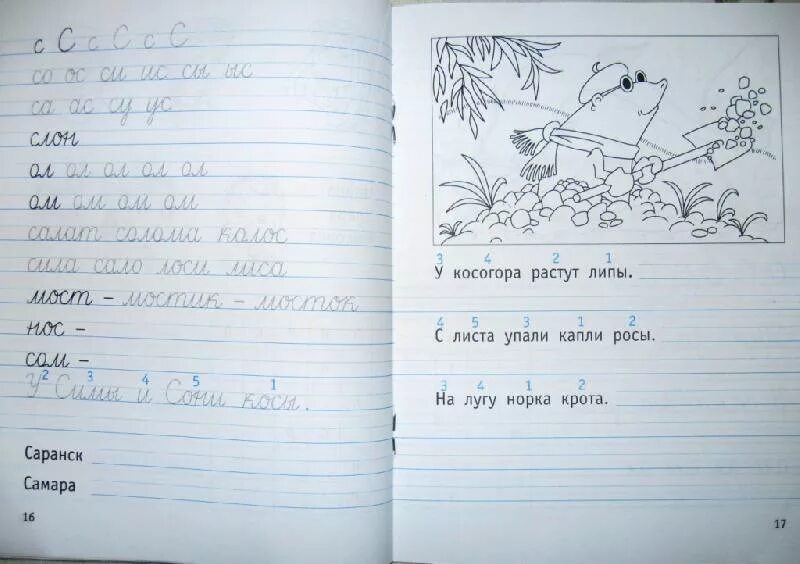 с С с С с С
со ос си ис сы ыс
са ас су ус
слон
ол ол ол ол ол
ом ом ом ом
салат солома колос
сила сало лоси лиса
мост – мостик – мосток
нос –
сом –
2 3 4 5 1
У Симы и Сони косы.
Саранск
Самара
16
3 4 2 1
У косогора растут липы.
4 5 3 1 2
С листа упали капли росы.
3 4 1 2
На лугу норка крота.
17